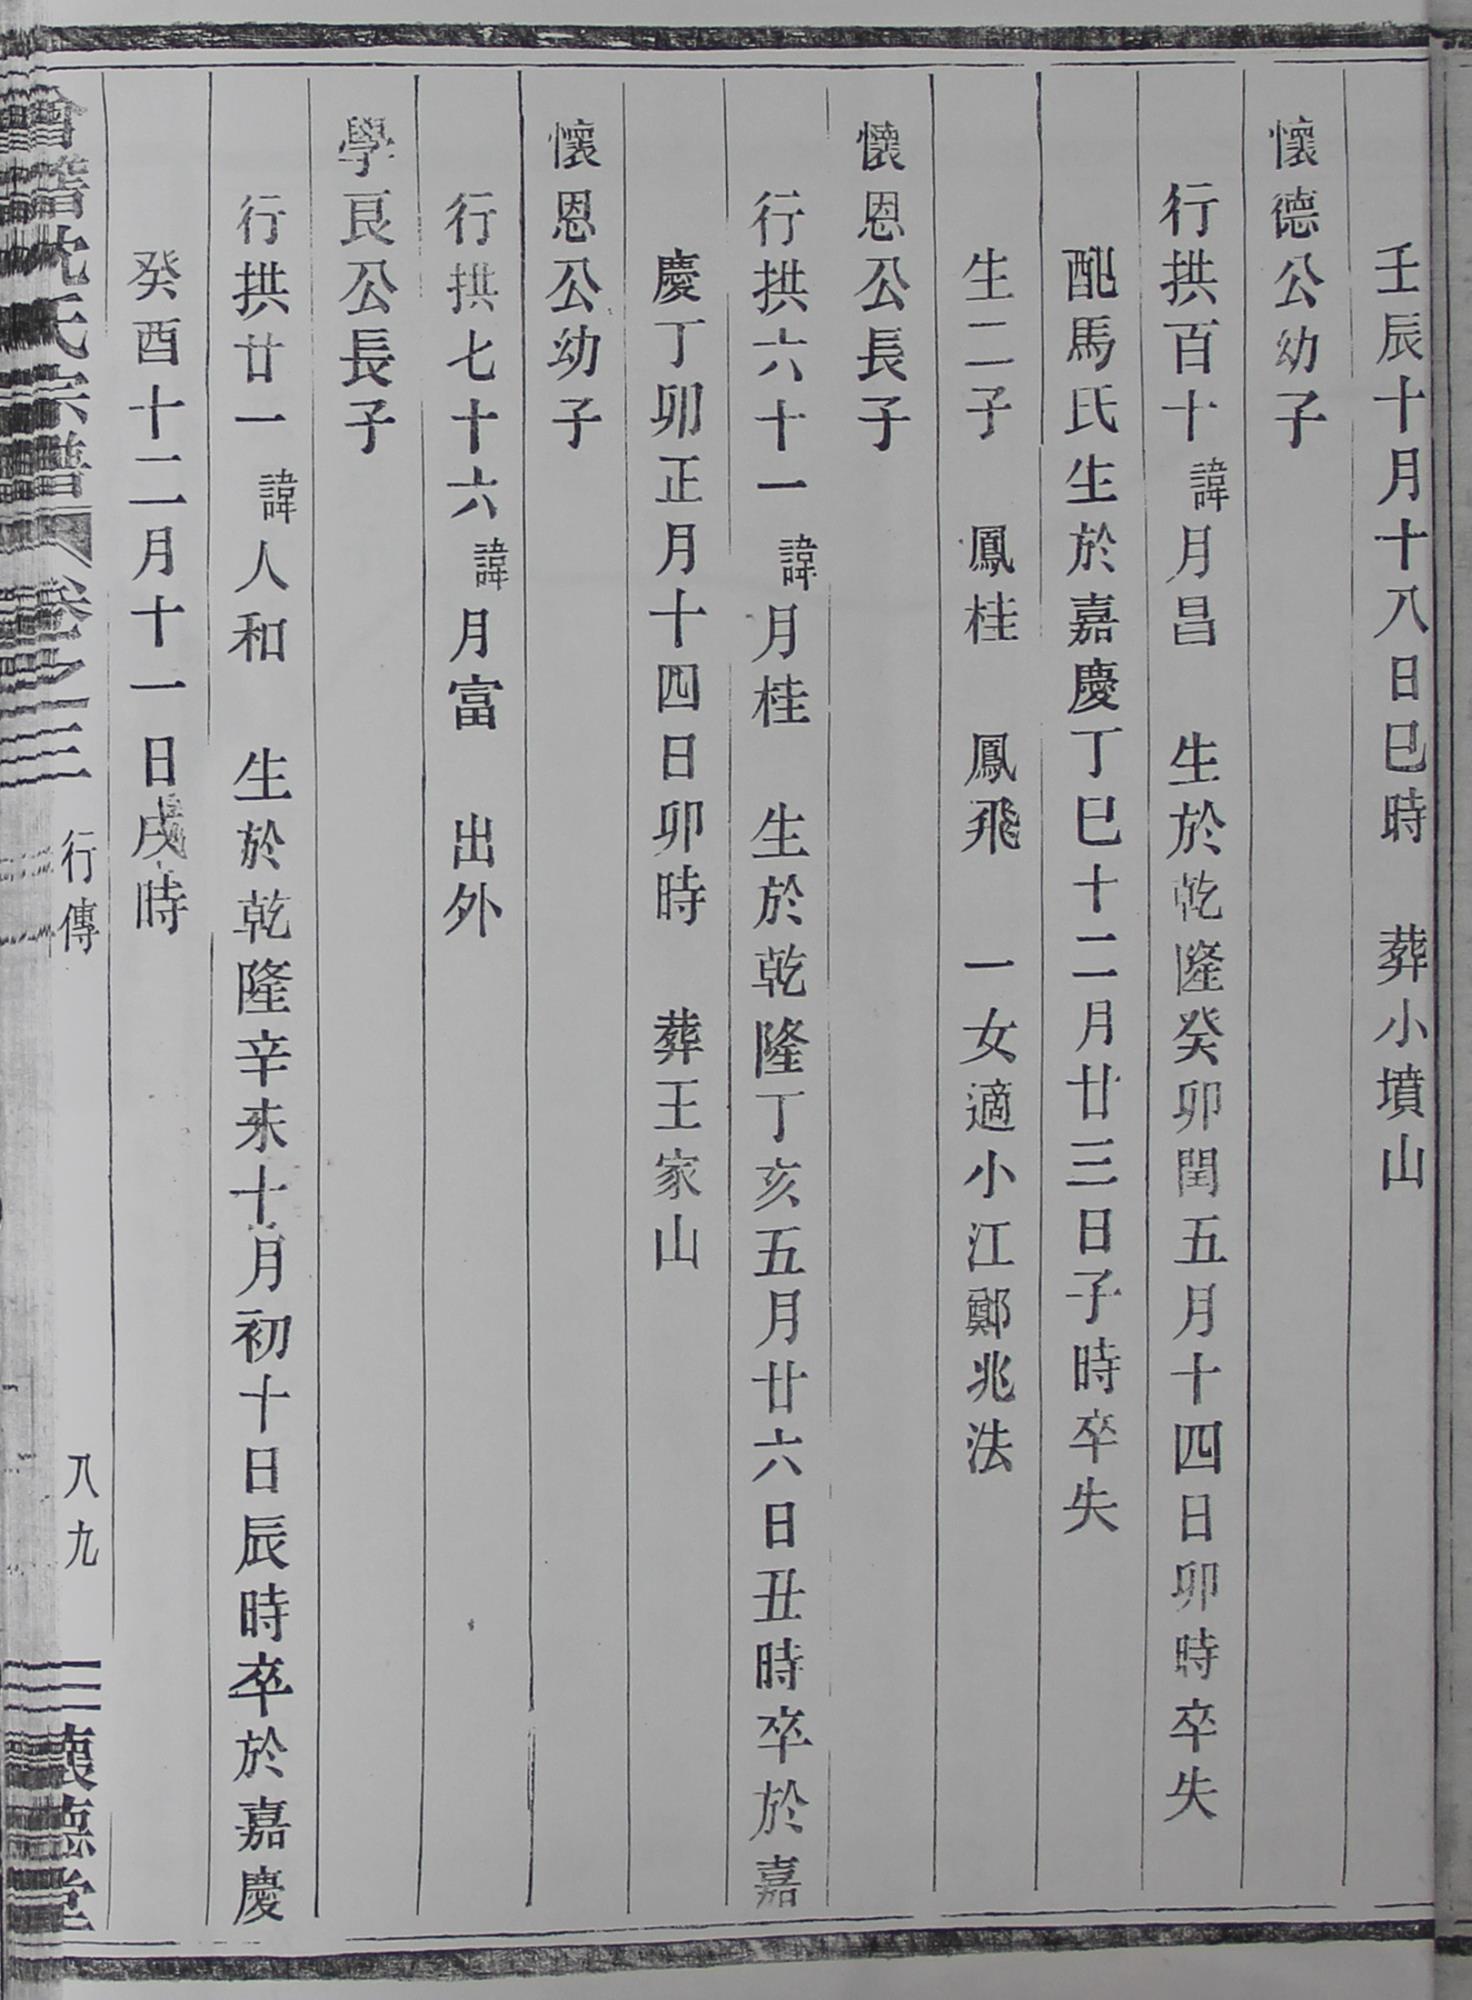 壬辰十月十八日巳時　葬小墳山
懷德公幼子
行拱百十諱月昌　生於乾隆癸卯閏五月十四日卯時卒失
配馬氏生於嘉慶丁巳十二月廿三日子時卒失
生二子　鳳桂　鳳飛　一女適小江鄭兆法
懷恩公長子
行拱六十一諱月桂　生於乾隆丁亥五月廿六日丑時卒於嘉
慶丁卯正月十四日卯時　葬王家山
懷恩公幼子
行拱七十六諱月富　出外
學良公長子
行拱廿一諱人和　生於乾隆辛未十月初十日辰時卒於嘉慶
癸酉十二月十一日戌時
會稽沈氏宗譜　卷之三　行傳　八九　懷德堂